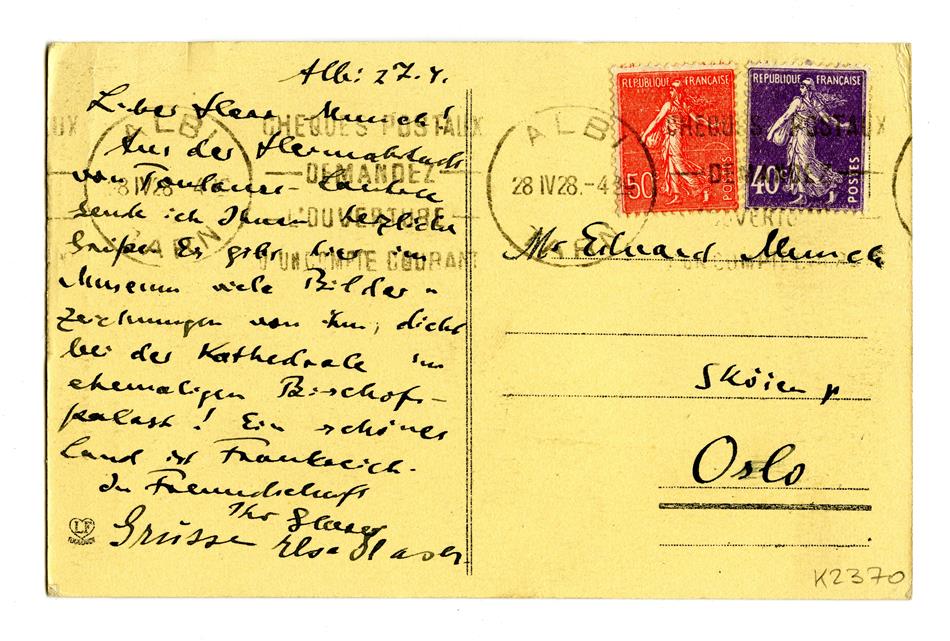 Albi 27.4.
Lieber Herr Munch!
Aus der Heimatstadt
von Toulouse-Lautrec
sende ich Ihnen herzliche
Grüße. Es gibt hier im
Museum viele Bilder u
Zeichnungen von ihm, dicht
bei der Kathedrale im
ehemaligen Bischofs-
palast! Ein schönes
Land ist Frankreich.
In Freundschaft
Ihr Glaser
Grüsse Elsa Glaser
LF
TOULOUSE
ALBI
28 IV 28
TARN
CHEQUES POSTAUX
DEMANDEZ
L'OUVERTURE
D'UN COMPTE COURANT
REPUBLIQUE FRANÇAISE
50c
POSTES
REPUBLIQUE FRANÇAISE
40c
POSTES
ALBI
28 IV 28
TARN
CHEQUES POSTAUX
Mr Edvard Munch
Sköien p
Oslo
K2370